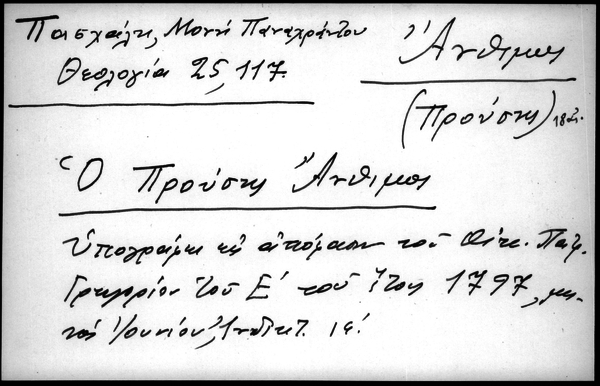 Πασχάλη, Μονή Παναχράντου
Θεολογία 25, 117.
Ἄνθιμος
(Προύσης) 18 αἰ.
Ὁ Προύσης Ἄνθιμος
Ὑπογράφει εἰς ἀπόφασιν τοῦ Οἰκ. Πατρ.
Γρηγορίου τοῦ Ε΄ τοῦ ἔτους 1797, μη-
νὸς Ἰουνίου, Ἰνδικτ. ιε΄.